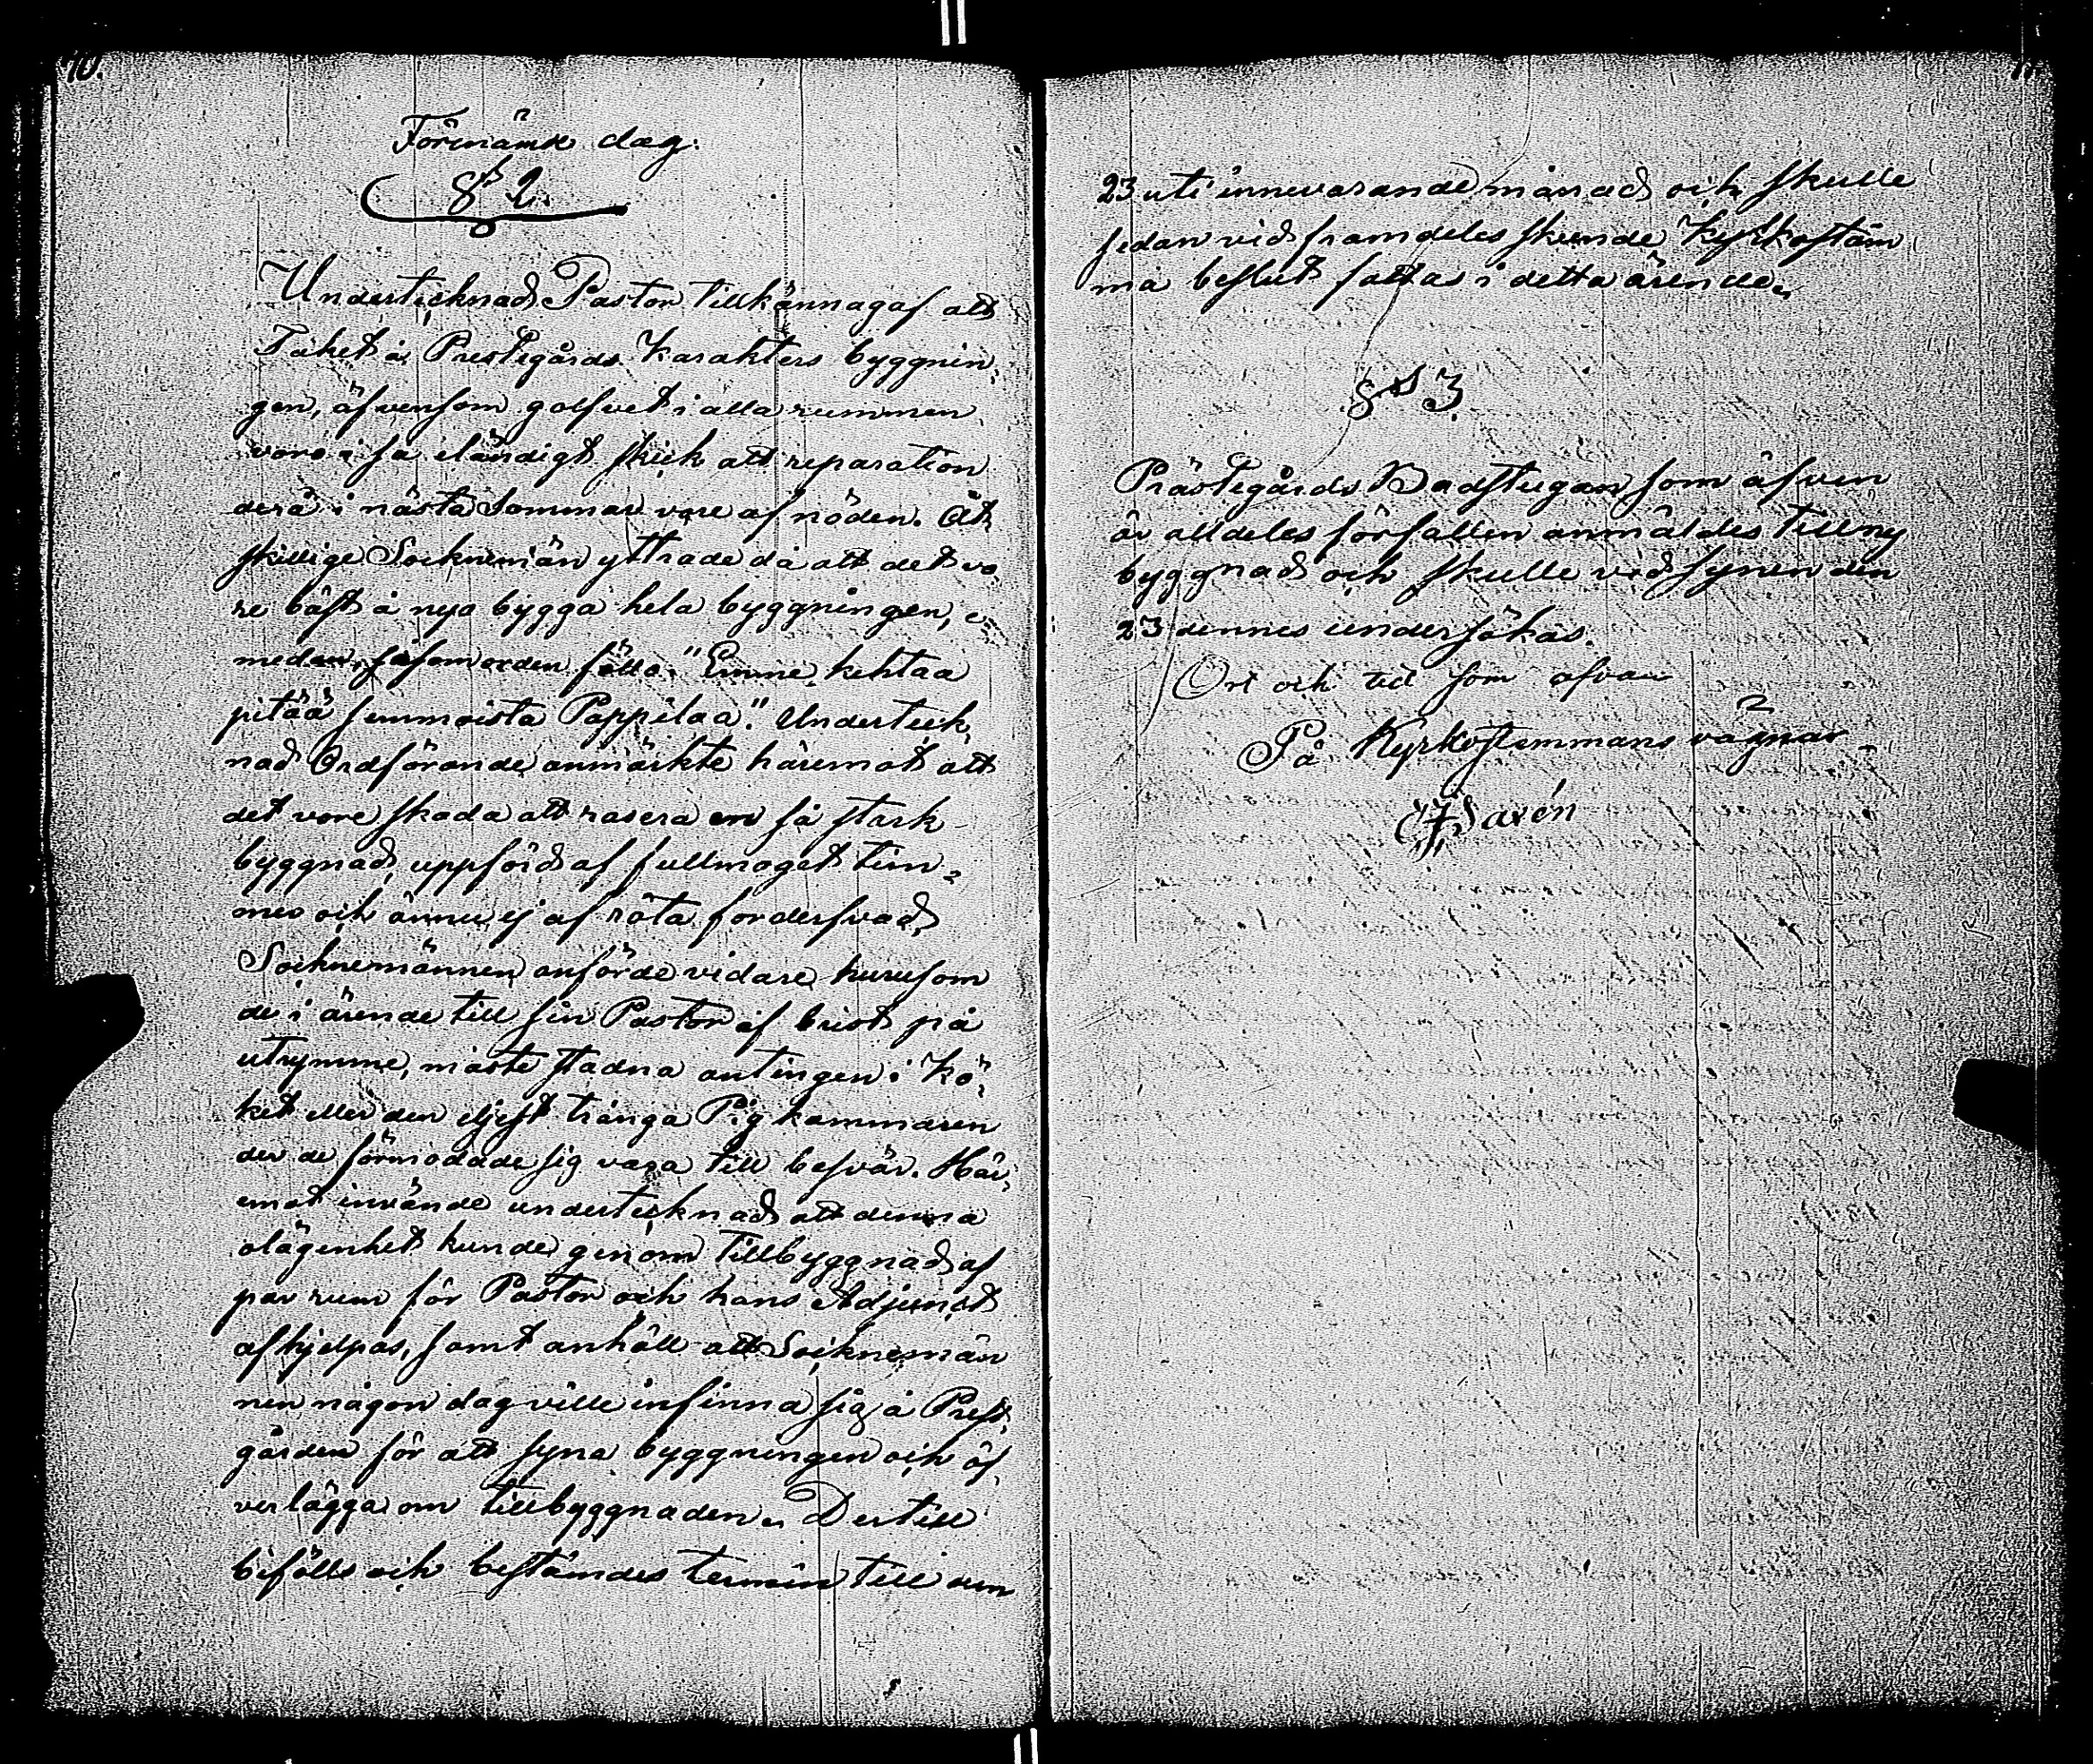 10.
Förnämde dag.
§ 2.
Undertecknad Pastor tillkännagaf att
Taket å Prestegårds Karakters byggnin,
gen, äfvensom golfvet i alla rummen
voro i så eländigt skick att reparation
derå i nästa Sommar vore af nöden. Åt,
skillige Socknemän yttrade då att det vo
re bäst å nyo bygga hela byggningen, e,
medan, såsom orden föllo, "Emme kehtaa
pitää semmoista Pappilaa." Underteck,
nad Ordförande anmärkte häremot att
det vore skada att rasera en så stark
byggnad, uppförd af fullmoget tim,
mer och ännu ej af röta förderfvad.
Socknemännen anförde vidare hurusom
de i ärende till sin Pastor af brist på
utrymme, måste stadna antingen i Kö,
ket eller den eljest trånga Pigkammaren
der de förmodade sig vara till besvär. Här,
emot invände undertecknad att denna
olägenhet kunde genom Tillbyggnad af
par rum för Pastor och hans Adjunct
afhjelpas, samt anhöll att Socknemän
nen någon dag ville infinna sig å Prest,
gården för att syna byggningen och öf,
verlägga om tillbyggnaden. Dertill
bifölls och bestämdes termin till den
11
23 uti innevarande månad och skulle
sedan vid framdeles skeende Kyrkostäm
ma beslut fattas i detta ärende.
§ 3.
Prästegårds Badstugan som äfven
är alldeles förfallen anmäldes till ny
byggnad och skulle vid synen den
23 dennes undersökas.
Ort och tid som ofvan
På Kyrkostemmans vägnar
Savén